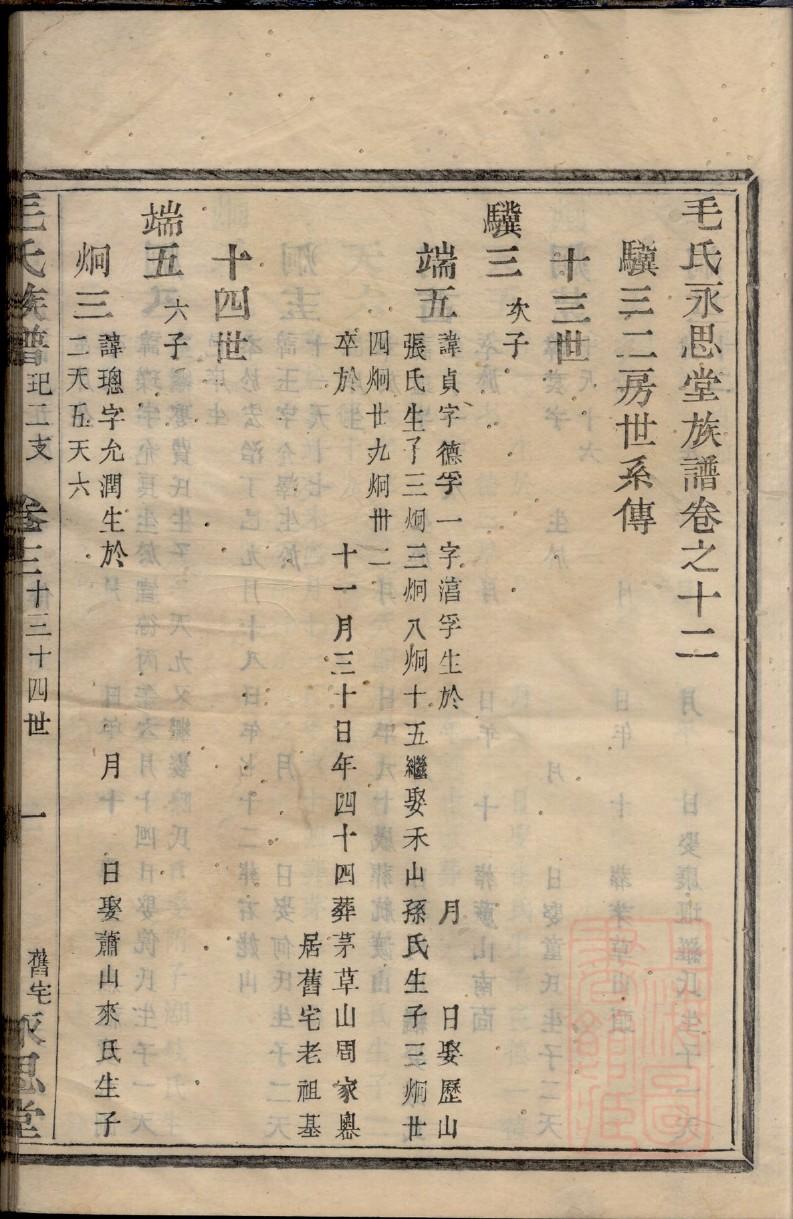 毛氏永思堂族譜卷之十二
驥三二房世系傳
十三世
驥三 次子
端五 諱貞字德孚一字滀孚生於　月　日娶歷山
張氏生子三炯三炯八炯十五繼娶禾山孫氏生子三炯廿
四炯廿九炯卅二
卒於　十一月三十日年四十四葬茅草山周家嶴
居舊宅老祖基
十四世
端五 六子
炯三 諱璁字允潤生於　月十　日娶蕭山來氏生子
二天五天六
毛氏族譜 玘二支 卷十二 十三十四世 一 舊宅 永思堂